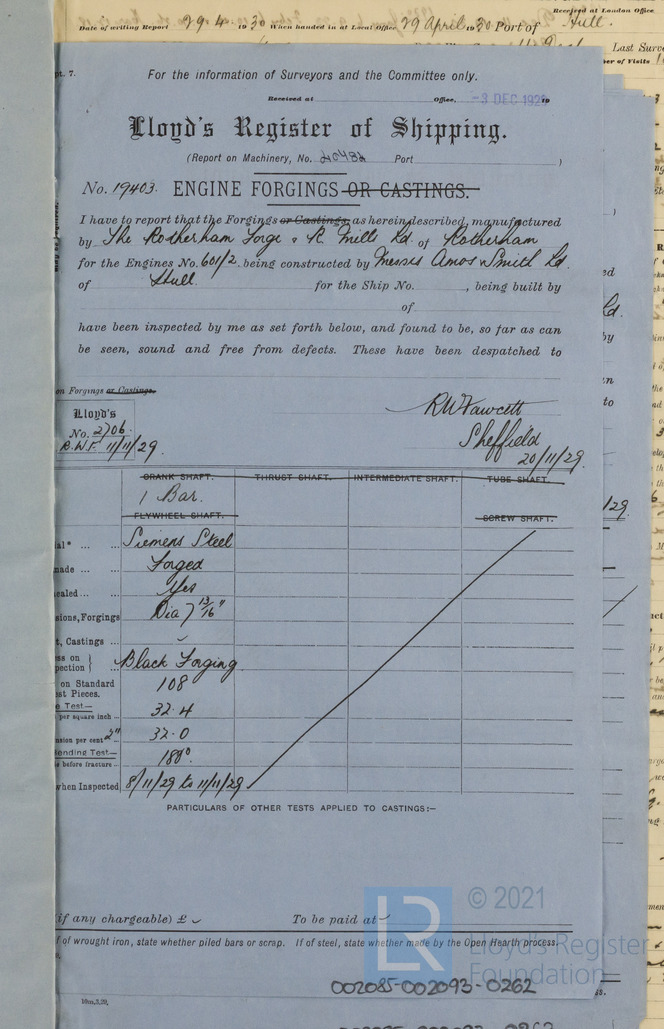 Received at London Office
Date of writing Report 29.4. 1930 When handed in at Local Office 29 April 1930 Port of Hull.
Last Surve
er of Visits
pt. 7.
For the information of Surveyors and the Committee only.
Received at Office, -3 DEC 1929
Lloyd's Register of Shipping.
(Report on Machinery, No. 40482 Port )
No. 19403. ENGINE FORGINGS OR CASTINGS.
I have to report that the Forgings or Castings, as herein described, manufactured
by The Rotherham Forge & R. Mills Ld. of Rotherham
for the Engines No. 601/2 being constructed by Messrs Amos & Smith Ld.
of Hull. for the Ship No. , being built by
of
have been inspected by me as set forth below, and found to be, so far as can
be seen, sound and free from defects. These have been despatched to
on Forgings or Castings.
Lloyd's
No. 2706.
R.W.F. 11/11/29.
RW Fawcett
Sheffield
20/11/29.
CRANK SHAFT. THRUST SHAFT. INTERMEDIATE SHAFT. TUBE SHAFT.
1 Bar.
FLYWHEEL SHAFT. SCREW SHAFT.
ial* ... ... Siemens Steel
made ... ... Forged
ealed ... ... Yes
sions, Forgings Dia 7 13/16"
t, Castings ...
ss on }
pection } Black Forging
on Standard 108
st Pieces.
e Test—
per square inch ... 32.4
nsion per cent 2" 32.0
Bending Test—
s before fracture ... 180°.
when Inspected 8/11/29 to 11/11/29
PARTICULARS OF OTHER TESTS APPLIED TO CASTINGS:—
(if any chargeable) £ To be paid at
f of wrought iron, state whether piled bars or scrap. If of steel, state whether made by the Open Hearth process.
© 2021
LR
Lloyd's Register
Foundation
002085-002093-0262
10m,3,29.